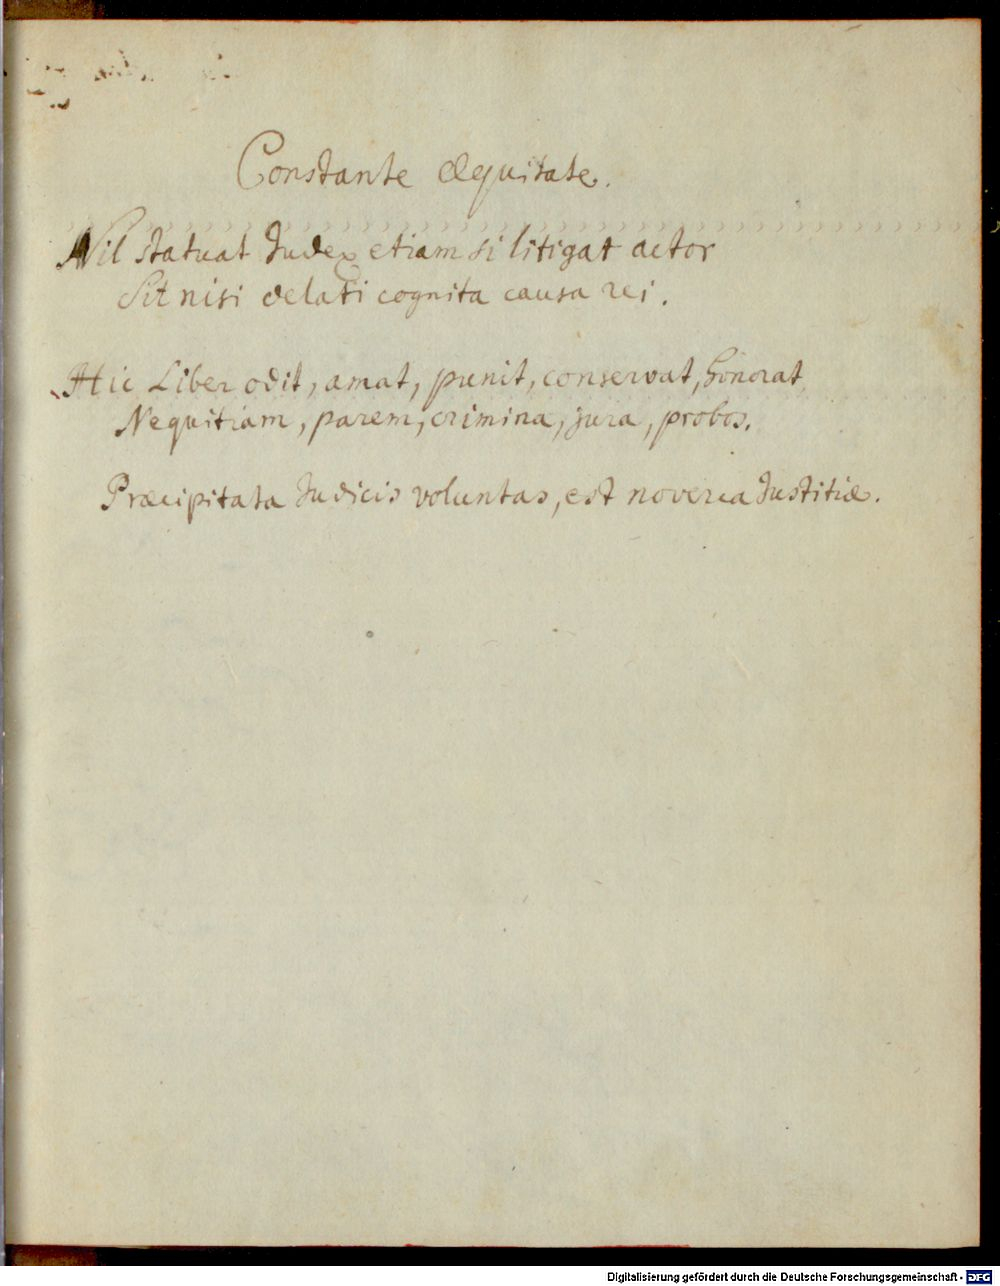 Constante Æquitate.
Nil statuat Iudex etiam si litigat actor
Sit nisi delati cognita causa rei.
Hic Liber odit, amat, punit, conservat, honorat
Nequitiam, parem, crimina, jura, probos.
Præcipitata Iudicis voluntas, est noverca Iustitiæ.
Digitalisierung gefördert durch die Deutsche Forschungsgemeinschaft - DFG